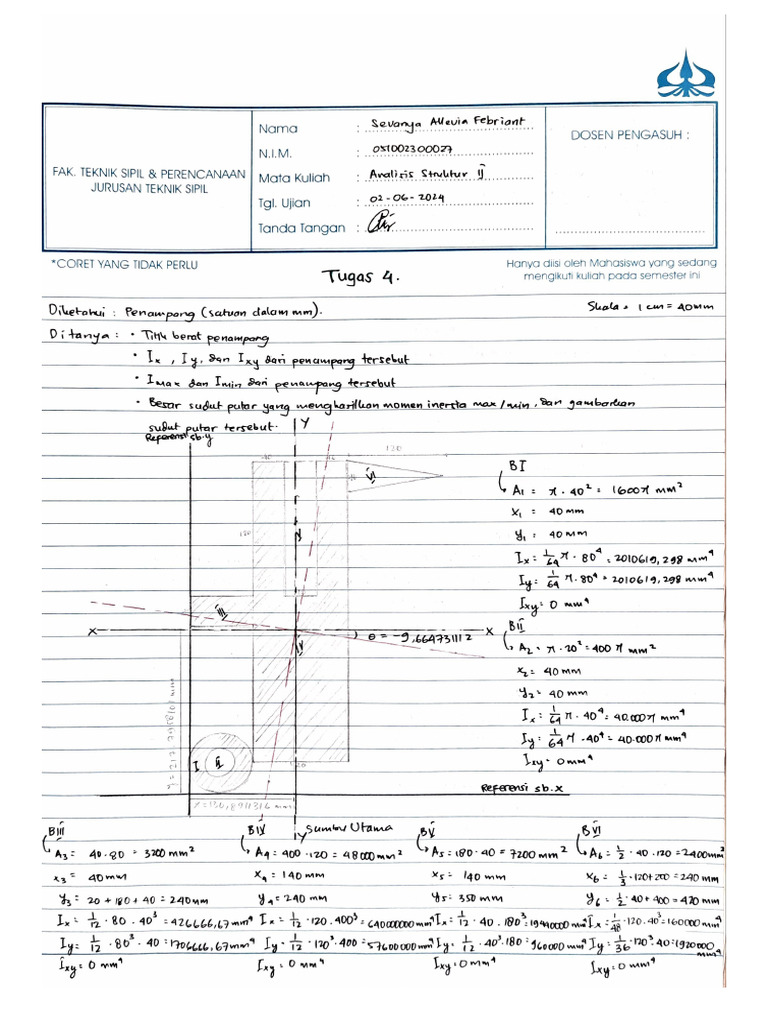 Nama : Sevanya Allevia Febriant
N.I.M. : 051002300027
Mata Kuliah : Analisis Struktur II
Tgl. Ujian : 02-06-2024
Tanda Tangan :
FAK. TEKNIK SIPIL & PERENCANAAN
JURUSAN TEKNIK SIPIL
DOSEN PENGASUH :
*CORET YANG TIDAK PERLU
Hanya diisi oleh Mahasiswa yang sedang
mengikuti kuliah pada semester ini
Tugas 4.
Diketahui : Penampang (satuan dalam mm). Skala = 1 cm = 40mm
Ditanya : • Titik berat penampang
• Ix , Iy, dan Ixy dari penampang tersebut
• Imax dan Imin dari penampang tersebut
• Besar sudut putar yang menghasilkan momen inersia max/min, dan gambarkan
sudut putar tersebut.
Y
Referensi sb.y
120
VI
V
III
IV
I
II
X
X
θ = -9,664731112
120
Referensi sb.x
x = 136,8911316 mm
Sumbu Utama
Y
BI
A1 = π . 40² = 1600π mm²
x1 = 40 mm
y1 = 40 mm
Ix = 1/64 π . 80⁴ = 2010619,298 mm⁴
Iy = 1/64 π . 80⁴ = 2010619,298 mm⁴
Ixy = 0 mm⁴
BII
A2 = π . 20² = 400 π mm²
x2 = 40 mm
y2 = 40 mm
Ix = 1/64 π . 40⁴ = 40.000π mm⁴
Iy = 1/64 π . 40⁴ = 40.000π mm⁴
Ixy = 0mm⁴
BIII
A3 = 40.80 = 3200 mm²
x3 = 40mm
y3 = 20 + 180 + 40 = 240mm
Ix = 1/12 . 80 . 40³ = 426666,67 mm⁴
Iy = 1/12 . 80³ . 40 = 1706666,67 mm⁴
Ixy = 0 mm⁴
BIV
A4 = 400 . 120 = 48000 mm²
x4 = 140 mm
y4 = 240 mm
Ix = 1/12 . 120 . 400³ = 640000000 mm⁴
Iy = 1/12 . 120³ . 400 = 57600000 mm⁴
Ixy = 0 mm⁴
BV
A5 = 180 . 40 = 7200 mm²
x5 = 140 mm
y5 = 350 mm
Ix = 1/12 . 40 . 180³ = 19440000 mm⁴
Iy = 1/12 . 40³ . 180 = 960000 mm⁴
Ixy = 0 mm⁴
BVI
A6 = 1/2 . 40 . 120 = 2400mm²
x6 = 1/3 . 120 + 200 = 240 mm
y6 = 1/2 . 40 + 400 = 420 mm
Ix = 1/48 . 120 . 40³ = 160000 mm⁴
Iy = 1/36 . 120³ . 40 = 1920000 mm⁴
Ixy = 0 mm⁴